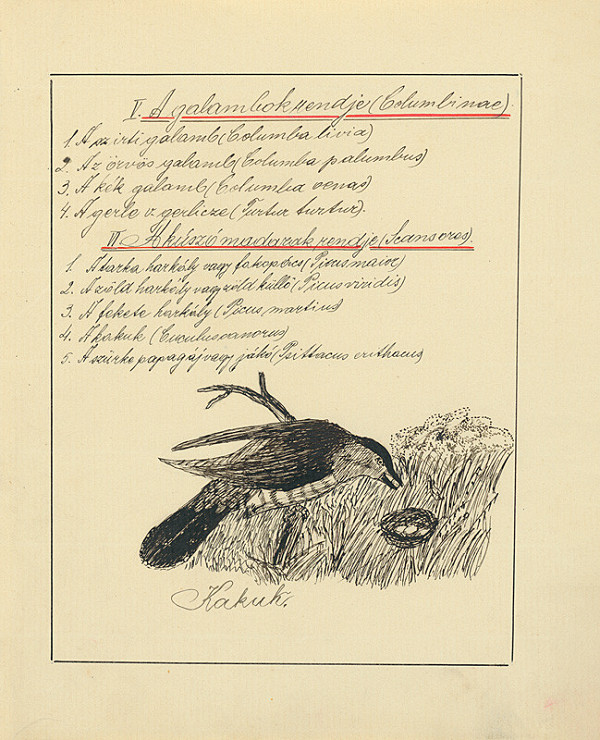 I. A galambok rendje (Columbinae).
1. A szirti galamb (Columba livia)
2. Az örvös galamb (Columba palumbus)
3. A kék galamb (Columba oenas)
4. A gerle v. gerlicze (Turtur turtur).
II. A kúszó madarak rendje (Scansores).
1. A tarka harkály vagy fakopács (Picus maior)
2. A zöld harkály vagy zöld küllő (Picus viridis)
3. A fekete harkály (Picus martius)
4. A kakuk (Cuculus canorus)
5. A szürke papagáj vagy jákó (Psittacus erithacus)
Kakuk.